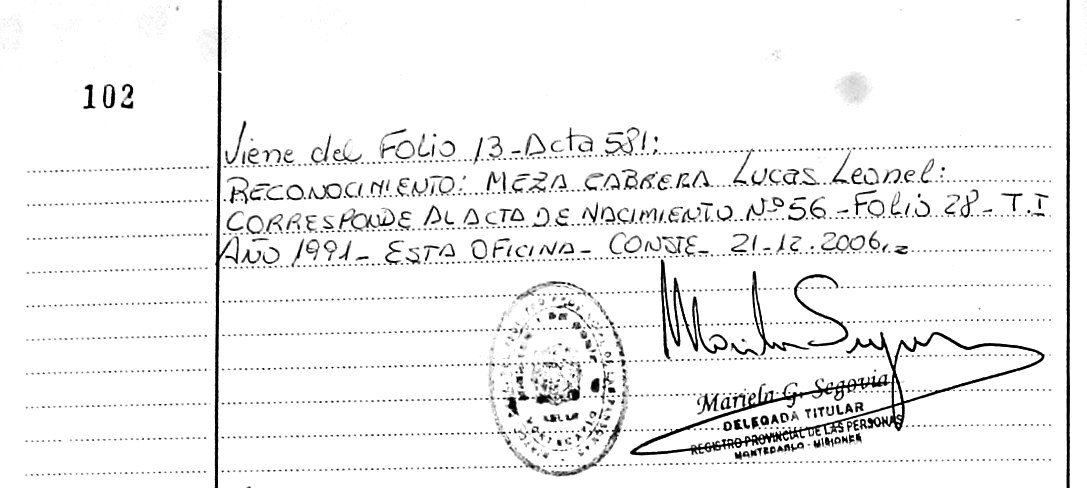 102
Viene del Folio 13-Acta 581:
RECONOCIMIENTO: MEZA CABRERA Lucas Leonel:
CORRESPONDE AL ACTA DE NACIMIENTO Nº 56-Folio 28-T.I
AÑO 1991- ESTA OFICINA- CONSTE- 21-12.2006.-
Mariela G. Segovia
DELEGADA TITULAR
REGISTRO PROVINCIAL DE LAS PERSONAS
MONTECARLO - MISIONES